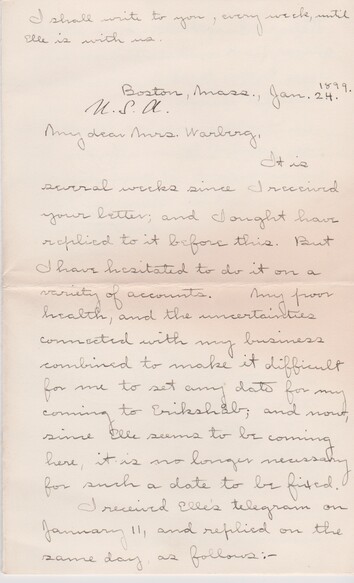 I shall write to you, every week, until
Elle is with us.
Boston, Mass., Jan. 24. 1899.
U. S. A.
My dear Mrs. Warberg,
It is
several weeks since I received
your letter; and I ought have
replied to it before this. But
I have hesitated to do it on a
variety of accounts. My poor
health, and the uncertainties
connected with my business
combined to make it difficult
for me to set any date for my
coming to Erikshåb; and now,
since Elle seems to be coming
here, it is no longer necessary
for such a date to be fixed.
I received Elle's telegram on
January 11, and replied on the
same day as follows:-